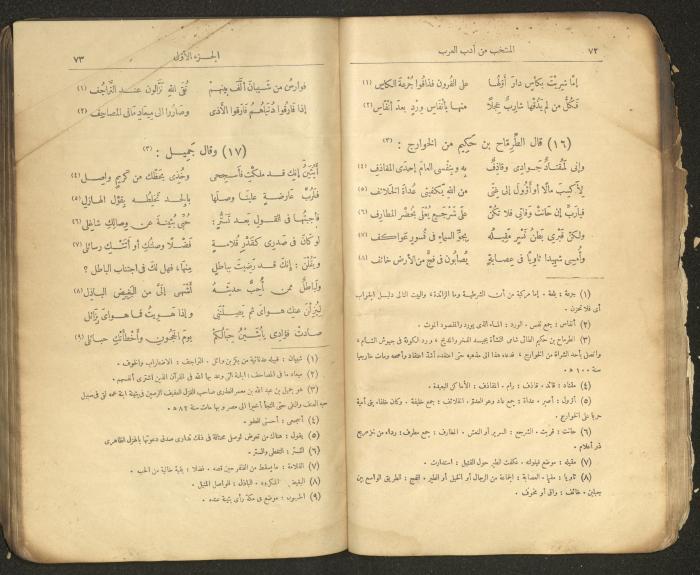 ٧٢
المنتخب من أدب العرب
إما شربتَ بكأسٍ دارَ أوّلُها على القرون فذاقوا جُرعةَ الكاسِ (١)
فكلُّ من لم يذُقها شاربٌ عجِلًا منها بأنفاس وِرْدٍ بعد أنفاس (٢)
(١٦) قال الطِّرِمّاح بن حكيم من الخوارج : (٣)
وإنى لمُقتادٌ جوادى وقاذفٌ به وبنفسى العامَ إحدى المقاذف (٤)
لِأكسِبَ مالًا أو أؤول إلى غِنًى من الله يكفينى عُداةَ الخلائف (٥)
فياربّ إن حانت وفاتى فلا تكن على شرجعٍ يُعلَى بخُضر المطارف (٦)
ولكن قبرى بطنُ نَسرٍ مَقيلُه بجوّ السماء فى نُسورٍ عواكف (٧)
وأُمسى شهيدا ثاويًا فى عصابةٍ يُصابون فى فجّ من الأرض خائف (٨)
(١) جرعة : بلعة . إما مركبة من أن الشرطية وما الزائدة، والبيت التالى دليل الجواب
أى فلا تحزن .
(٢) أنفاس : جمع نفس . الورد : الماء الذى يورد والمقصود الموت .
(٣) الطرماح بن حكيم الطائى شاعر
سنة ١٠٠ هـ .
(٤) مقتاد : قائد . قاذف : رام . المقاذف : الأماكن البعيدة .
(٥) أؤول : أصير . عداة : جمع عاد وهو العدو . الخلائف : جمع خليفة . وكان خلفاء بنى أمية
حربا على الخوارج .
(٦) حانت : قربت . الشرجع : السرير أو النعش . المطارف : جمع مطرف : رداء من خز مربع
ذو أعلام .
(٧) مقيله : موضع قيلوله . عكفت الطير حول القتيل : استدارت .
(٨) ثاويا : مقيما . العصابة : الجماعة من الرجال أو الخيل أو الطير . الفج : الطريق الواسع بين
جبلين . خائف : واق أو مخوف .
الجزء الأول
٧٣
فوارسُ من شيبانَ ألَّف بينهم تُقَى اللهِ نزّالون عند التزاحُف (١)
إذا فارقوا دُنياهُمُ فارقوا الأذى وصاروا إلى ميعادِ ما فى المصاحِف (٢)
(١٧) وقال جَميل : (٣)
أبُثَيْنَ إنك قد ملكتِ فأسجِحى وخُذى بحظّك من كريمٍ واصل (٤)
فلرُبّ عارضةٍ علينا وصلَها بالجِدّ تخلِطُه بقول الهازل (٥)
فأجبتُها فى القول بعد تستُّر : حُبّى بُثينةَ عن وصالك شاغلى (٦)
لو كان فى صدرى كقدر قُلامةٍ فضلًا وصلتُكِ أو أتتكِ رسائلى (٧)
ويقلن : إنك قد رضيتَ بباطلٍ منها، فهل لك فى اجتناب الباطل ؟
ولَباطلٌ ممن أُحِبُّ حديثَه أشهى إلىَّ من البغيض الباذل (٨)
ليُزِلْنَ عنك هواىَ ثم يصِلْننى وإذا هويتُ فما هواىَ بزائل
صادت فؤادى يا بُثَينُ حِبالُكم يومَ الحَجونِ، وأخطأتكِ حبائلى (٩)
(١) شيبان : قبيلة عدنانية من بكر بن وائل .
(٢) ميعاد ما فى المصاحف : الجنة التى وعد بها الله فى القرآن الذين اشترى أنفسهم .
(٣) هو جميل بن عبد الله بن معمر العذرى صاحب
وبها مات سنة ٨٢ هـ .
(٤) أسجحى : أحسنى العفو .
(٥) يقول : هناك من تعرض لوصل
(٦) التستر : التغطى والستر .
(٧) القلامة : ما يسقط من الظفر حين قصه . فضلا : بقية خالية من الحب .
(٨) البغيض : المكروه . الباذل :
(٩) الحجون : موضع فى مكة رأى بثينة عنده .